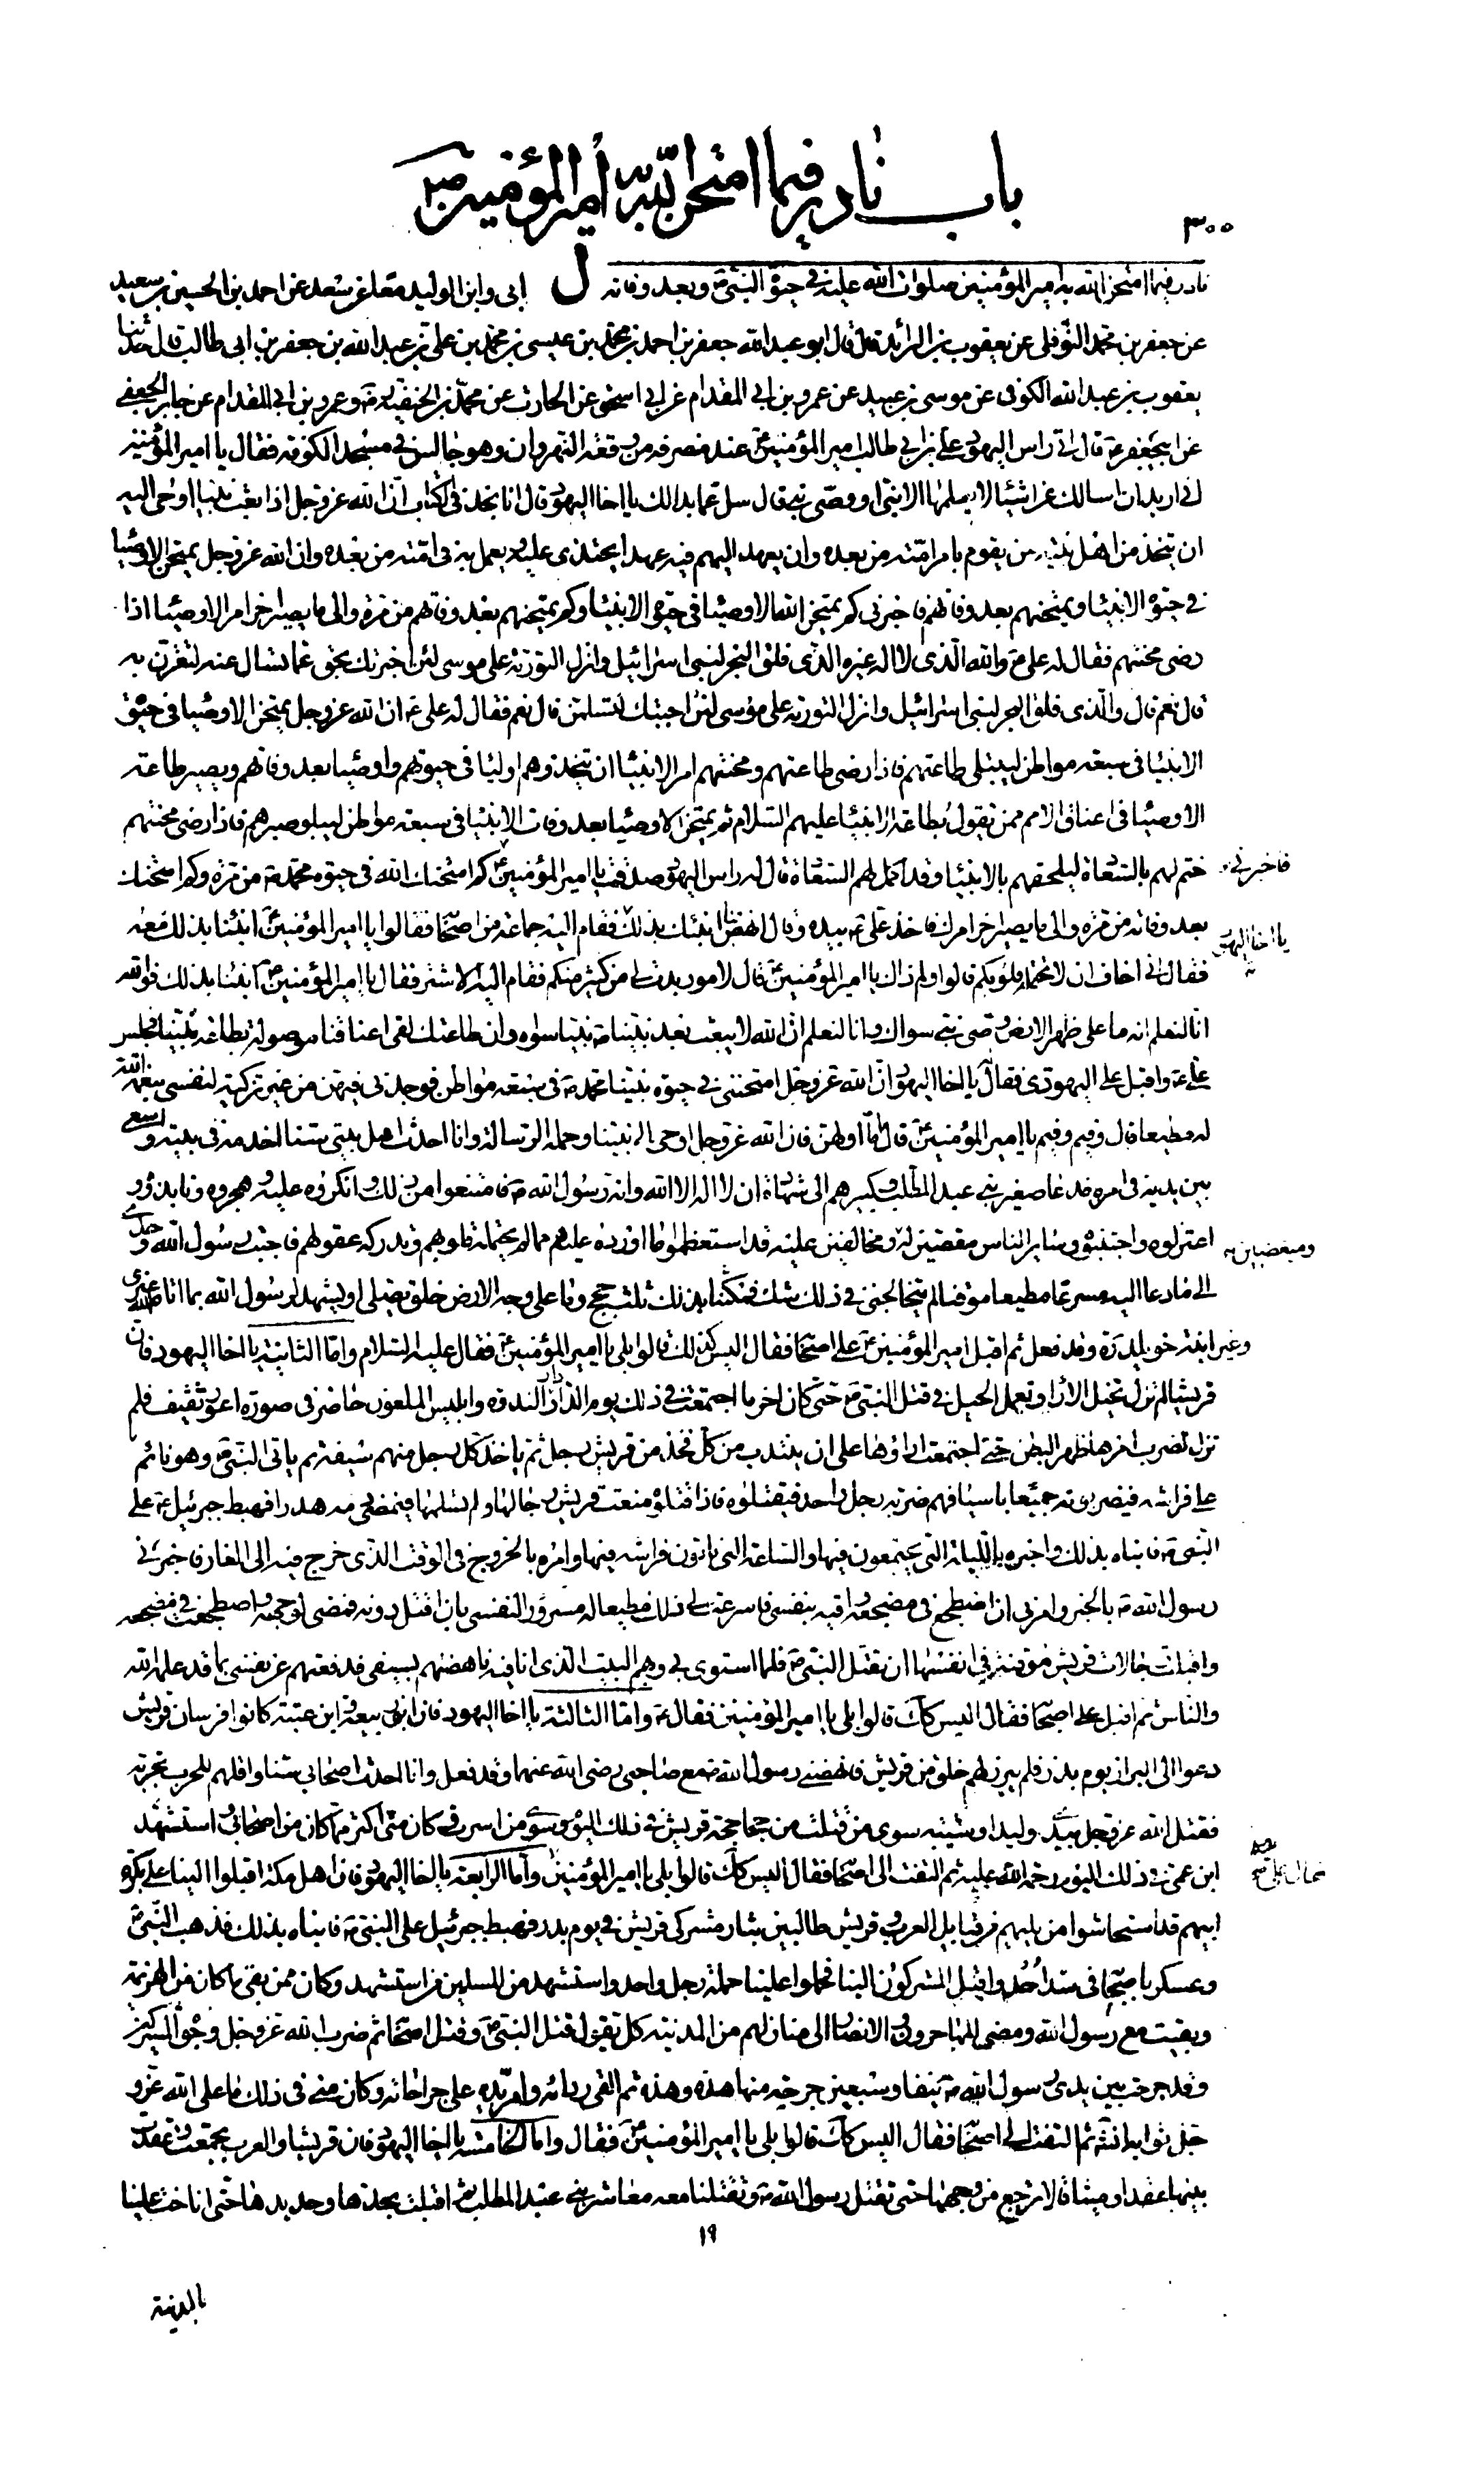 باب نادر فيما امتحن الله به أمير المؤمنين ص
٣٠٠
نادر فيما امتحن الله به امير المؤمنين صلوات الله عليه في حيوة النبي ص وبعد وفاته ل ابى وابن الوليد معا عن سعد عن احمد بن الحسين بن سعيد
عن جعفر بن محمد النوفلى عن يعقوب بن الرائد قال قال ابو عبد الله جعفر بن احمد بن محمد بن عيسى بن محمد بن على بن عبد الله بن جعفر بن ابى طالب قال حدثنا
يعقوب بن عبد الله الكوفى عن موسى بن عبيد عن عمرو بن ابى المقدام عن ابى اسحق عن الحارث عن محمد بن الحنفية رض وعمرو بن ابى المقدام عن جابر الجعفى
عن ابيجعفر ع قال اتى راس اليهود على بن ابى طالب امير المؤمنين ع عند منصرفه من وقعة النهروان وهو جالس في مسجد الكوفة فقال يا امير المؤمنين
انى اريد ان اسالك عن اشيئا لا يعلمها الا نبى او وصى نبى قال سل عما بدا لك يا اخا اليهود قال انا نجد في الكتاب ان الله عز وجل اذا بعث نبيا اوحى اليه
ان يتخذ من اهل بيته من يقوم بامر امته من بعده وان يعهد اليهم فيه عهدا يحتذى عليه ويعمل به في امته من بعده وان الله عز وجل يمتحن الاوصيا
في حيوة الانبيا ويمتحنهم بعد وفاتهم فاخبرنى كم يمتحن الله الاوصيا في حيوة الانبيا وكم يمتحنهم بعد وفاتهم من مرة والى ما يصير اخر امر الاوصيا اذا
رضى محنتهم فقال له على ع والله الذى لا اله غيره الذى فلق البحر لبنى اسرائيل وانزل التورية على موسى لئن اخبرتك بحق عما تسال عنه لتقرن به
قال نعم قال والذى فلق البحر لبنى اسرائيل وانزل التورية على موسى لئن اجبتك لتسلمن قال نعم فقال له على ع ان الله عز وجل يمتحن الاوصيا في حيوة
الانبيا في سبعة مواطن ليبتلى طاعتهم فاذا رضى طاعتهم ومحنتهم امر الانبيا ان يتخذوهم اوليا في حيوتهم واوصيا بعد وفاتهم ويصير طاعة
الاوصيا في اعناق الامم ممن يقول بطاعة الانبيا عليهم السلام ثم يمتحن الاوصيا بعد وفات الانبيا في سبعة مواطن ليبلو صبرهم فاذا رضى محنتهم
ختم لهم بالسعادة ليلحقهم بالانبيا وقد اكمل لهم السعادة قال له راس اليهود صدقت يا امير المؤمنين ع كم امتحنك الله في حيوة محمد ص من مرة وكم امتحنك
فاخبرنى
بعد وفاته من مرة والى ما يصير اخر امرك فاخذ على ع بيده وقال انهض بنا انبئك بذلك فقام اليه جماعة من اصحابه فقالوا يا امير المؤمنين ع انبئنا بذلك معه
يا اخا اليهود
فقال انى اخاف ان لا تحتمله قلوبكم قالوا ولم ذاك يا امير المؤمنين ع قال لامور بدت لى من كثير منكم فقام اليه الاشتر فقال يا امير المؤمنين ع انبئنا بذلك فوالله
انا لنعلم انه ما على ظهر الارض وصى نبى سواك وانا لنعلم ان الله لا يبعث بعد نبينا ص نبيا سواه وان طاعتك لفى اعناقنا موصولة بطاعة نبينا فجلس
على ع واقبل على اليهودى فقال يا اخا اليهود ان الله عز وجل امتحننى في حيوة نبينا محمد ص في سبعة مواطن فوجدنى فيهن من غير تزكية لنفسى بنعمة الله
له مطيعا قال وفيم وفيم يا امير المؤمنين ع قال اما اولهن فان الله عز وجل اوحى الى نبينا وحمله الرسالة وانا احدث اهل بيتى سنا اخدمه في بيته واسعى
بين يديه في امره فدعا صغير بنى عبد المطلب وكبيرهم الى شهادة ان لا اله الا الله وانه رسول الله ص فامتنعوا من ذلك وانكروه عليه وهجروه ونابذوه و
اعتزلوه واجتنبوه وساير الناس مقصين له ومخالفين عليه قد استعظموا ما اورده عليهم مما لم يحتمله قلوبهم وتدركه عقولهم فاجبت رسول الله وحدى
ومبغضين
الى ما دعا اليه مسرعا مطيعا موقنا لم يتخالجنى في ذلك شك فمكثنا بذلك ثلث حجج وما على وجه الارض خلق يصلى او يشهد لرسول الله بما اتاه الله غيرى
وغير ابنة خويلد ره وقد فعل ثم اقبل امير المؤمنين ع على اصحابه فقال اليس كذلك قالوا بلى يا امير المؤمنين ع فقال عليه السلام واما الثانية يا اخا اليهود فان
قريشا لم تزل تخيل الارا وتعمل الحيل في قتل النبى ص حتى كان اخر ما اجتمعت في ذلك يوم الدار دار الندوة وابليس الملعون حاضر في صورة اعور ثقيف فلم
تزل تضرب امرها ظهر البطن حتى اجتمعت اراؤها على ان ينتدب من كل فخذ من قريش رجل ثم ياخذ كل رجل منهم سيفه ثم ياتى النبى ص وهو نائم
على فراشه فيضربونه جميعا باسيافهم ضربة رجل واحد فيقتلوه فاذا قتلوه منعت قريش رجالها ولم تسلمها فيمضى دمه هدرا فهبط جبرئيل ع على
النبى ص فانباه بذلك واخبره بالليلة التى يجتمعون فيها والساعة التى ياتون فراشه فيها وامره بالخروج في الوقت الذى خرج فيه الى الغار فاخبرنى
رسول الله ص بالخبر وامرنى ان اضطجع في مضجعه واقيه بنفسى فاسرعت الى ذلك مطيعا له مسرورا لنفسى بان اقتل دونه فمضى لوجهه واضطجعت في مضجعه
واقبلت رجالات قريش موقنة في انفسها ان تقتل النبى ص فلما استوى بى وبهم البيت الذى انا فيه ناهضتهم بسيفى فدفعتهم عن نفسى بما قد علمه الله
والناس ثم اقبل على اصحابه فقال اليس كك قالوا بلى يا امير المؤمنين فقال ع واما الثالثة يا اخا اليهود فان ابنى ربيعة وابن عتبة كانوا فرسان قريش
دعوا الى البراز يوم بدر فلم يبرز لهم خلق من قريش فانهضنى رسول الله ص مع صاحبى رضى الله عنهما وقد فعل وانا احدث اصحابى سنا واقلهم للحرب تجربة
فقتل الله عز وجل بيدى وليدا وشيبة سوى من قتلت من جحاجحة قريش في ذلك اليوم وسوى من اسرت وكان منى اكثر مما كان من اصحابى واستشهد
ابن عمى في ذلك اليوم رحمة الله عليه ثم التفت الى اصحابه فقال اليس كك قالوا بلى يا امير المؤمنين واما الرابعة يا اخا اليهود فان اهل مكة اقبلوا الينا على بكرة
ابيهم قد استحاشوا من يليهم من قبايل العرب وقريش طالبين بثار مشركى قريش في يوم بدر فهبط جبرئيل على النبى ص فانباه بذلك فذهب النبى ص
وعسكر باصحابه في سد احد واقبل المشركون الينا فحملوا علينا حملة رجل واحد واستشهد من المسلمين من استشهد وكان ممن بقى ما كان من الهزيمة
وبقيت مع رسول الله ومضى المهاجرون والانصار الى منازلهم من المدينة كل يقول قتل النبى ص وقتل اصحابه ثم ضرب الله عز وجل وجوه المشركين
وقد جرحت بين يدى رسول الله ص نيفا وسبعين جرحة منها هذه وهذه ثم القى رداءه وامر يده على جراحاته وكان منى في ذلك ما على الله عز و
جل ثوابه انشه ثم التفت الى اصحابه فقال اليس كك قالوا بلى يا امير المؤمنين ع فقال واما الخامسة يا اخا اليهود فان قريشا والعرب تجمعت وعقدت
بينها عقدا وميثاقا لا ترجع من وجهها حتى تقتل رسول الله ص وتقتلنا معه معاشر بنى عبد المطلب ثم اقبلت بحدها وحديدها حتى اناخت علينا
١٩
بالمدينة